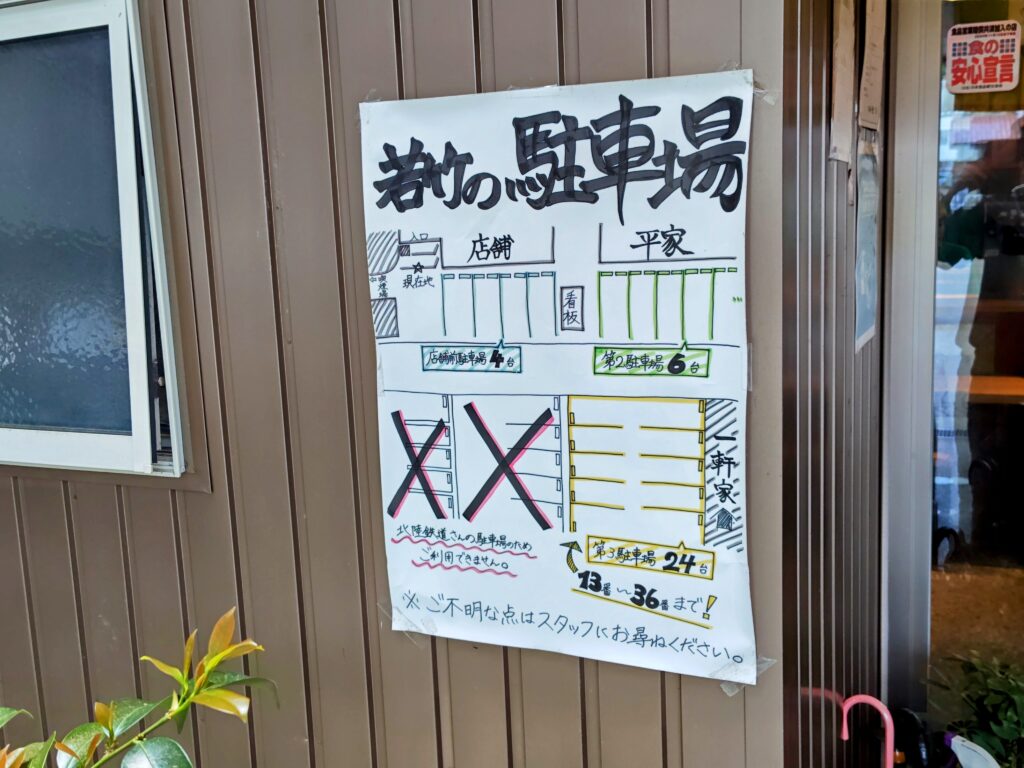 若竹の駐車場
入口
店舗
平家
現在地
喫煙場
看板
店舗前駐車場4台
第2駐車場6台
一軒家
北陸鉄道さんの駐車場のため
ご利用できません。
第3駐車場24台
13番〜36番まで!
※ご不明な点はスタッフにお尋ねください。
食の
安心宣言